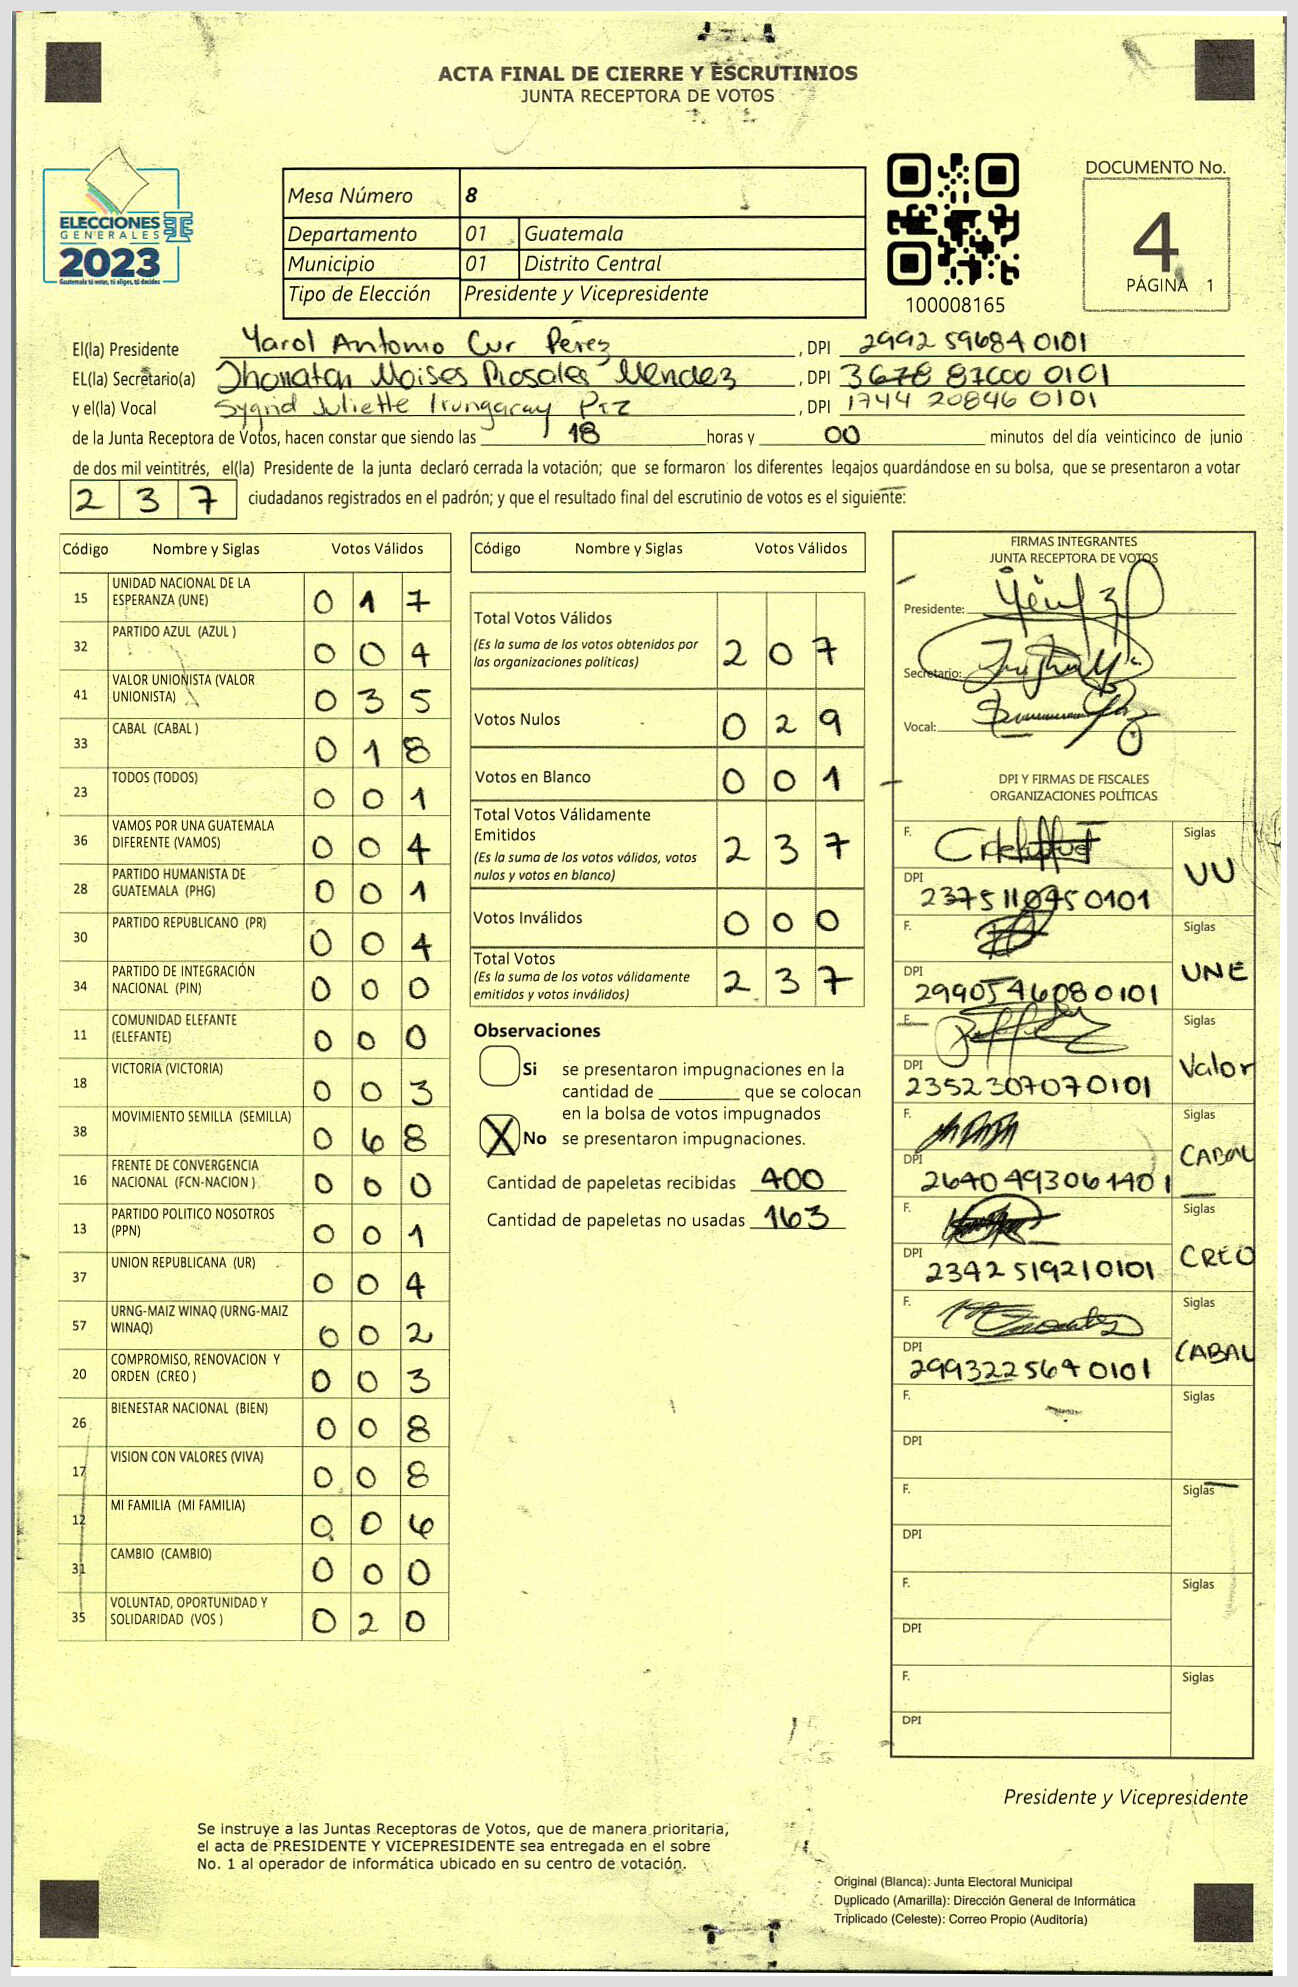 ACTA FINAL DE CIERRE Y ESCRUTINIOS
JUNTA RECEPTORA DE VOTOS
ELECCIONES
GENERALES
2023
Guatemala tú votas, tú eliges, tú decides
Mesa Número 8
Departamento 01 Guatemala
Municipio 01 Distrito Central
Tipo de Elección Presidente y Vicepresidente
100008165
DOCUMENTO No.
4
PÁGINA 1
El(la) Presidente Yarol Antonio Cur Pérez, DPI 2992 59684 0101
EL(la) Secretario(a) Jhonatan Moises Rosales Mendez, DPI 3678 87000 0101
y el(la) Vocal Sygrid Juliette Irungaray, DPI 1744 20846 0101
de la Junta Receptora de Votos, hacen constar que siendo las 18 horas y 00 minutos del día veinticinco de junio
de dos mil veintitrés, el(la) Presidente de la junta declaró cerrada la votación; que se formaron los diferentes legajos guardándose en su bolsa, que se presentaron a votar
2 3 7 ciudadanos registrados en el padrón; y que el resultado final del escrutinio de votos es el siguiente:
Código Nombre y Siglas Votos Válidos
15 UNIDAD NACIONAL DE LA ESPERANZA (UNE) 0 1 7
32 PARTIDO AZUL (AZUL ) 0 0 4
41 VALOR UNIONISTA (VALOR UNIONISTA) 0 3 5
33 CABAL (CABAL ) 0 1 8
23 TODOS (TODOS) 0 0 1
36 VAMOS POR UNA GUATEMALA DIFERENTE (VAMOS) 0 0 4
28 PARTIDO HUMANISTA DE GUATEMALA (PHG) 0 0 1
30 PARTIDO REPUBLICANO (PR) 0 0 4
34 PARTIDO DE INTEGRACIÓN NACIONAL (PIN) 0 0 0
11 COMUNIDAD ELEFANTE (ELEFANTE) 0 0 0
18 VICTORIA (VICTORIA) 0 0 3
38 MOVIMIENTO SEMILLA (SEMILLA) 0 6 8
16 FRENTE DE CONVERGENCIA NACIONAL (FCN-NACION ) 0 0 0
13 PARTIDO POLITICO NOSOTROS (PPN) 0 0 1
37 UNION REPUBLICANA (UR) 0 0 4
57 URNG-MAIZ WINAQ (URNG-MAIZ WINAQ) 0 0 2
20 COMPROMISO, RENOVACION Y ORDEN (CREO ) 0 0 3
26 BIENESTAR NACIONAL (BIEN) 0 0 8
17 VISION CON VALORES (VIVA) 0 0 8
12 MI FAMILIA (MI FAMILIA) 0 0 6
31 CAMBIO (CAMBIO) 0 0 0
35 VOLUNTAD, OPORTUNIDAD Y SOLIDARIDAD (VOS ) 0 2 0
Código Nombre y Siglas Votos Válidos
Total Votos Válidos
(Es la suma de los votos obtenidos por las organizaciones políticas) 2 0 7
Votos Nulos 0 2 9
Votos en Blanco 0 0 1
Total Votos Válidamente Emitidos
(Es la suma de los votos válidos, votos nulos y votos en blanco) 2 3 7
Votos Inválidos 0 0 0
Total Votos
(Es la suma de los votos válidamente emitidos y votos inválidos) 2 3 7
Observaciones
Si se presentaron impugnaciones en la
cantidad de ________ que se colocan
en la bolsa de votos impugnados
X No se presentaron impugnaciones.
Cantidad de papeletas recibidas 400
Cantidad de papeletas no usadas 163
FIRMAS INTEGRANTES
JUNTA RECEPTORA DE VOTOS
Presidente:
Secretario:
Vocal:
DPI Y FIRMAS DE FISCALES
ORGANIZACIONES POLÍTICAS
F. Siglas VU
DPI 2375 110450101
F. Siglas UNE
DPI 2990546080101
F. Siglas Valor
DPI 2352307070101
F. Siglas CABAL
DPI 2640493061401
F. Siglas CREO
DPI 2342519210101
F. Siglas CABAL
DPI 2993225640101
F. Siglas
DPI
F. Siglas
DPI
F. Siglas
DPI
F. Siglas
DPI
Presidente y Vicepresidente
Se instruye a las Juntas Receptoras de Votos, que de manera prioritaria,
el acta de PRESIDENTE Y VICEPRESIDENTE sea entregada en el sobre
No. 1 al operador de informática ubicado en su centro de votación.
Original (Blanca): Junta Electoral Municipal
Duplicado (Amarilla): Dirección General de Informática
Triplicado (Celeste): Correo Propio (Auditoría)